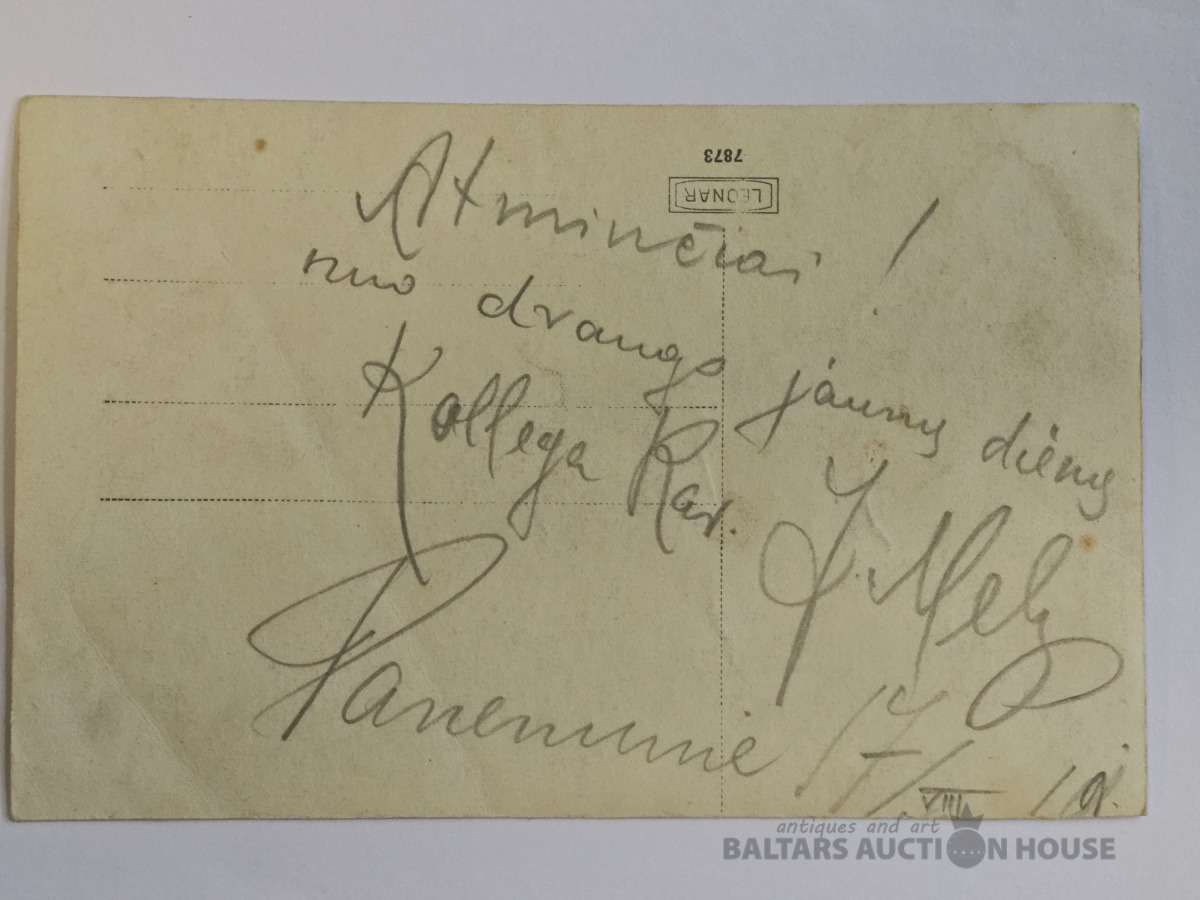 7873
LEONAR
Atminčiai !
nuo draugo jaunų dienų
Kollega Kar. J. Mel
Panemunie 17/VIII
antiques and art
BALTARS AUCTION HOUSE